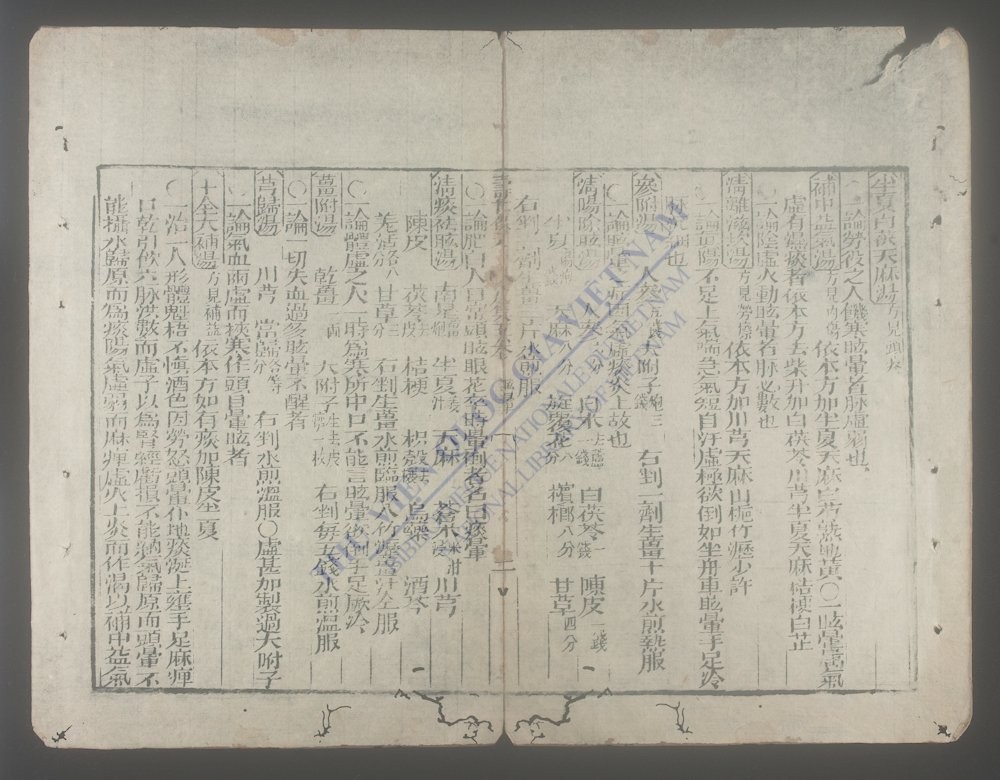 半夏白茯天麻湯方見
一論勞役之人饑寒眩暈者脉虛弱也
補中益氣湯方見內傷 依本方加半夏天麻白芍熟地黃○一眩暈
虛有痰者依本方去柴升加白茯苓川芎半夏天麻桔梗白芷
一論陰虛火動眩暈者脉必數也
清離滋坎湯方見勞瘵 依本方加川芎天麻山梔竹瀝少許
一論眞陽不足上氣喘急氣短自汗虛極欲倒如坐舟車眩暈手足冷
也
參附湯 人參五錢 大附子炮三錢 右剉一劑生薑十片水煎熱服
痰火上故也
清陽除眩湯 白朮去蘆一錢 白茯苓一錢 陳皮一錢
半夏 天麻八分 旋覆花八分 檳榔八分 甘草四分
右剉一劑薑三片水煎服
壽世保元
○一論肥白人居常頭眩眼花卒時暈倒者名曰痰暈
清痰祛眩湯 南星 半夏 天麻 蒼朮 川芎
陳皮 茯苓去皮 桔梗 枳殼 烏藥 酒芩
羌活各八分 甘草三分 右剉生薑水煎臨服入竹瀝薑汁全服
○一論體虛之人一時爲寒所中口不能言眩暈欲倒手足厥冷
薑附湯 乾薑一兩 大附子生去皮臍一枚 右剉每五錢水煎溫服
○一論一切失血過多眩暈不醒者
芎歸湯 川芎 當歸各等 右剉水煎溫服○虛甚加製過大附子
○一論氣血兩虛而挾寒住頭目暈眩者
十全大補湯方見補益 依本方如有痰加陳皮半夏
○一治一人形體魁梧不愼酒色因勞怒頭暈仆地痰涎上壅手足麻痺
口乾引飲六脉洪數而虛予以爲腎經虧損不能納氣歸原而頭暈不
能攝水歸原而爲痰陽氣虛弱而麻痺虛火上炎而作渴以補中益氣
THƯ VIỆN QUỐC GIA VIỆT NAM
NATIONAL LIBRARY OF VIETNAM